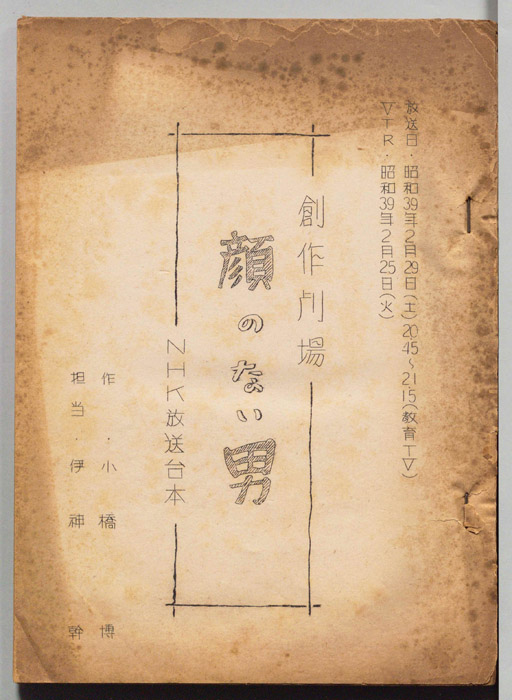 放送日・昭和39年2月29日(土)2045〜2115(教育TV)
VTR・昭和39年2月25日(火)
創作刋場
顔のない男
NHK放送台本
作・小橋博
担当・伊神幹